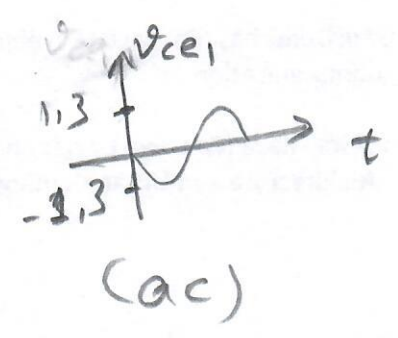 vce1
1,3
t
-1,3
(ac)